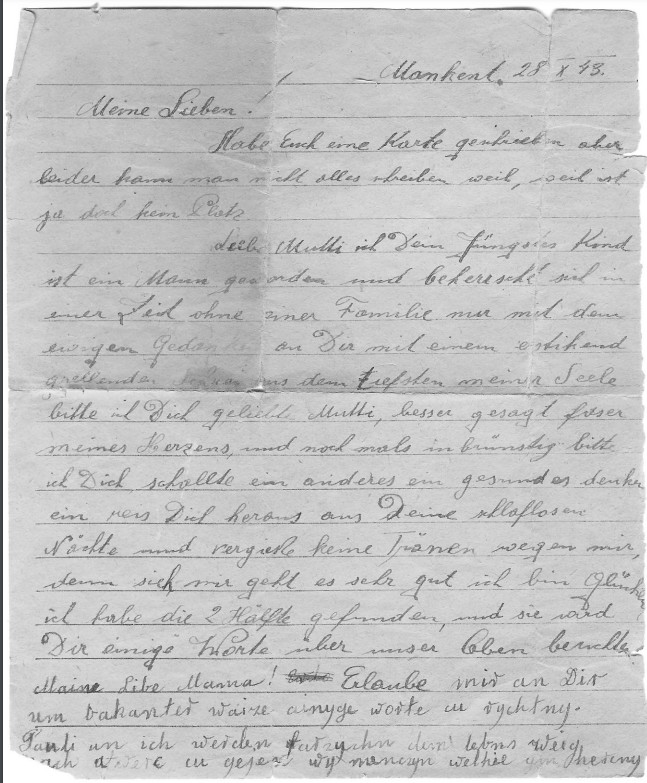 Mankent. 28 X 43.
Meine Lieben!
Habe Euch eine Karte geschrieben aber
leider kann man nicht alles schreiben weil, weil ist
ja doch kein Platz
Liebe Mutti ich Dein Jüngstes Kind
ist ein Mann geworden und beherescht sich in
einer Zeit ohne einer Familie nur mit dem
ewigen Gedanken an Dir mit einem
aus dem tiefsten meiner Seele
bitte ich Dich geliebte Mutti, besser gesagt faser
meines Herzens, und noch mals inbrünstig bitte
ich Dich, schallte ein anderes ein gesundes denken
ein reis Dich heraus aus Deine schlaflosen
Nächte und vergiese keine Tränen wegen mir,
denn sieh mir geht es sehr gut ich bin Glücklich
ich habe die 2 Hälfte gefunden, und sie wird
Dir einige Worte über unser Leben berichten
Maine Libe Mama! Erlaube mir an Dir
um bakanter waize ajnyge worte cu rychtny.
Pauli un ich werden
cu